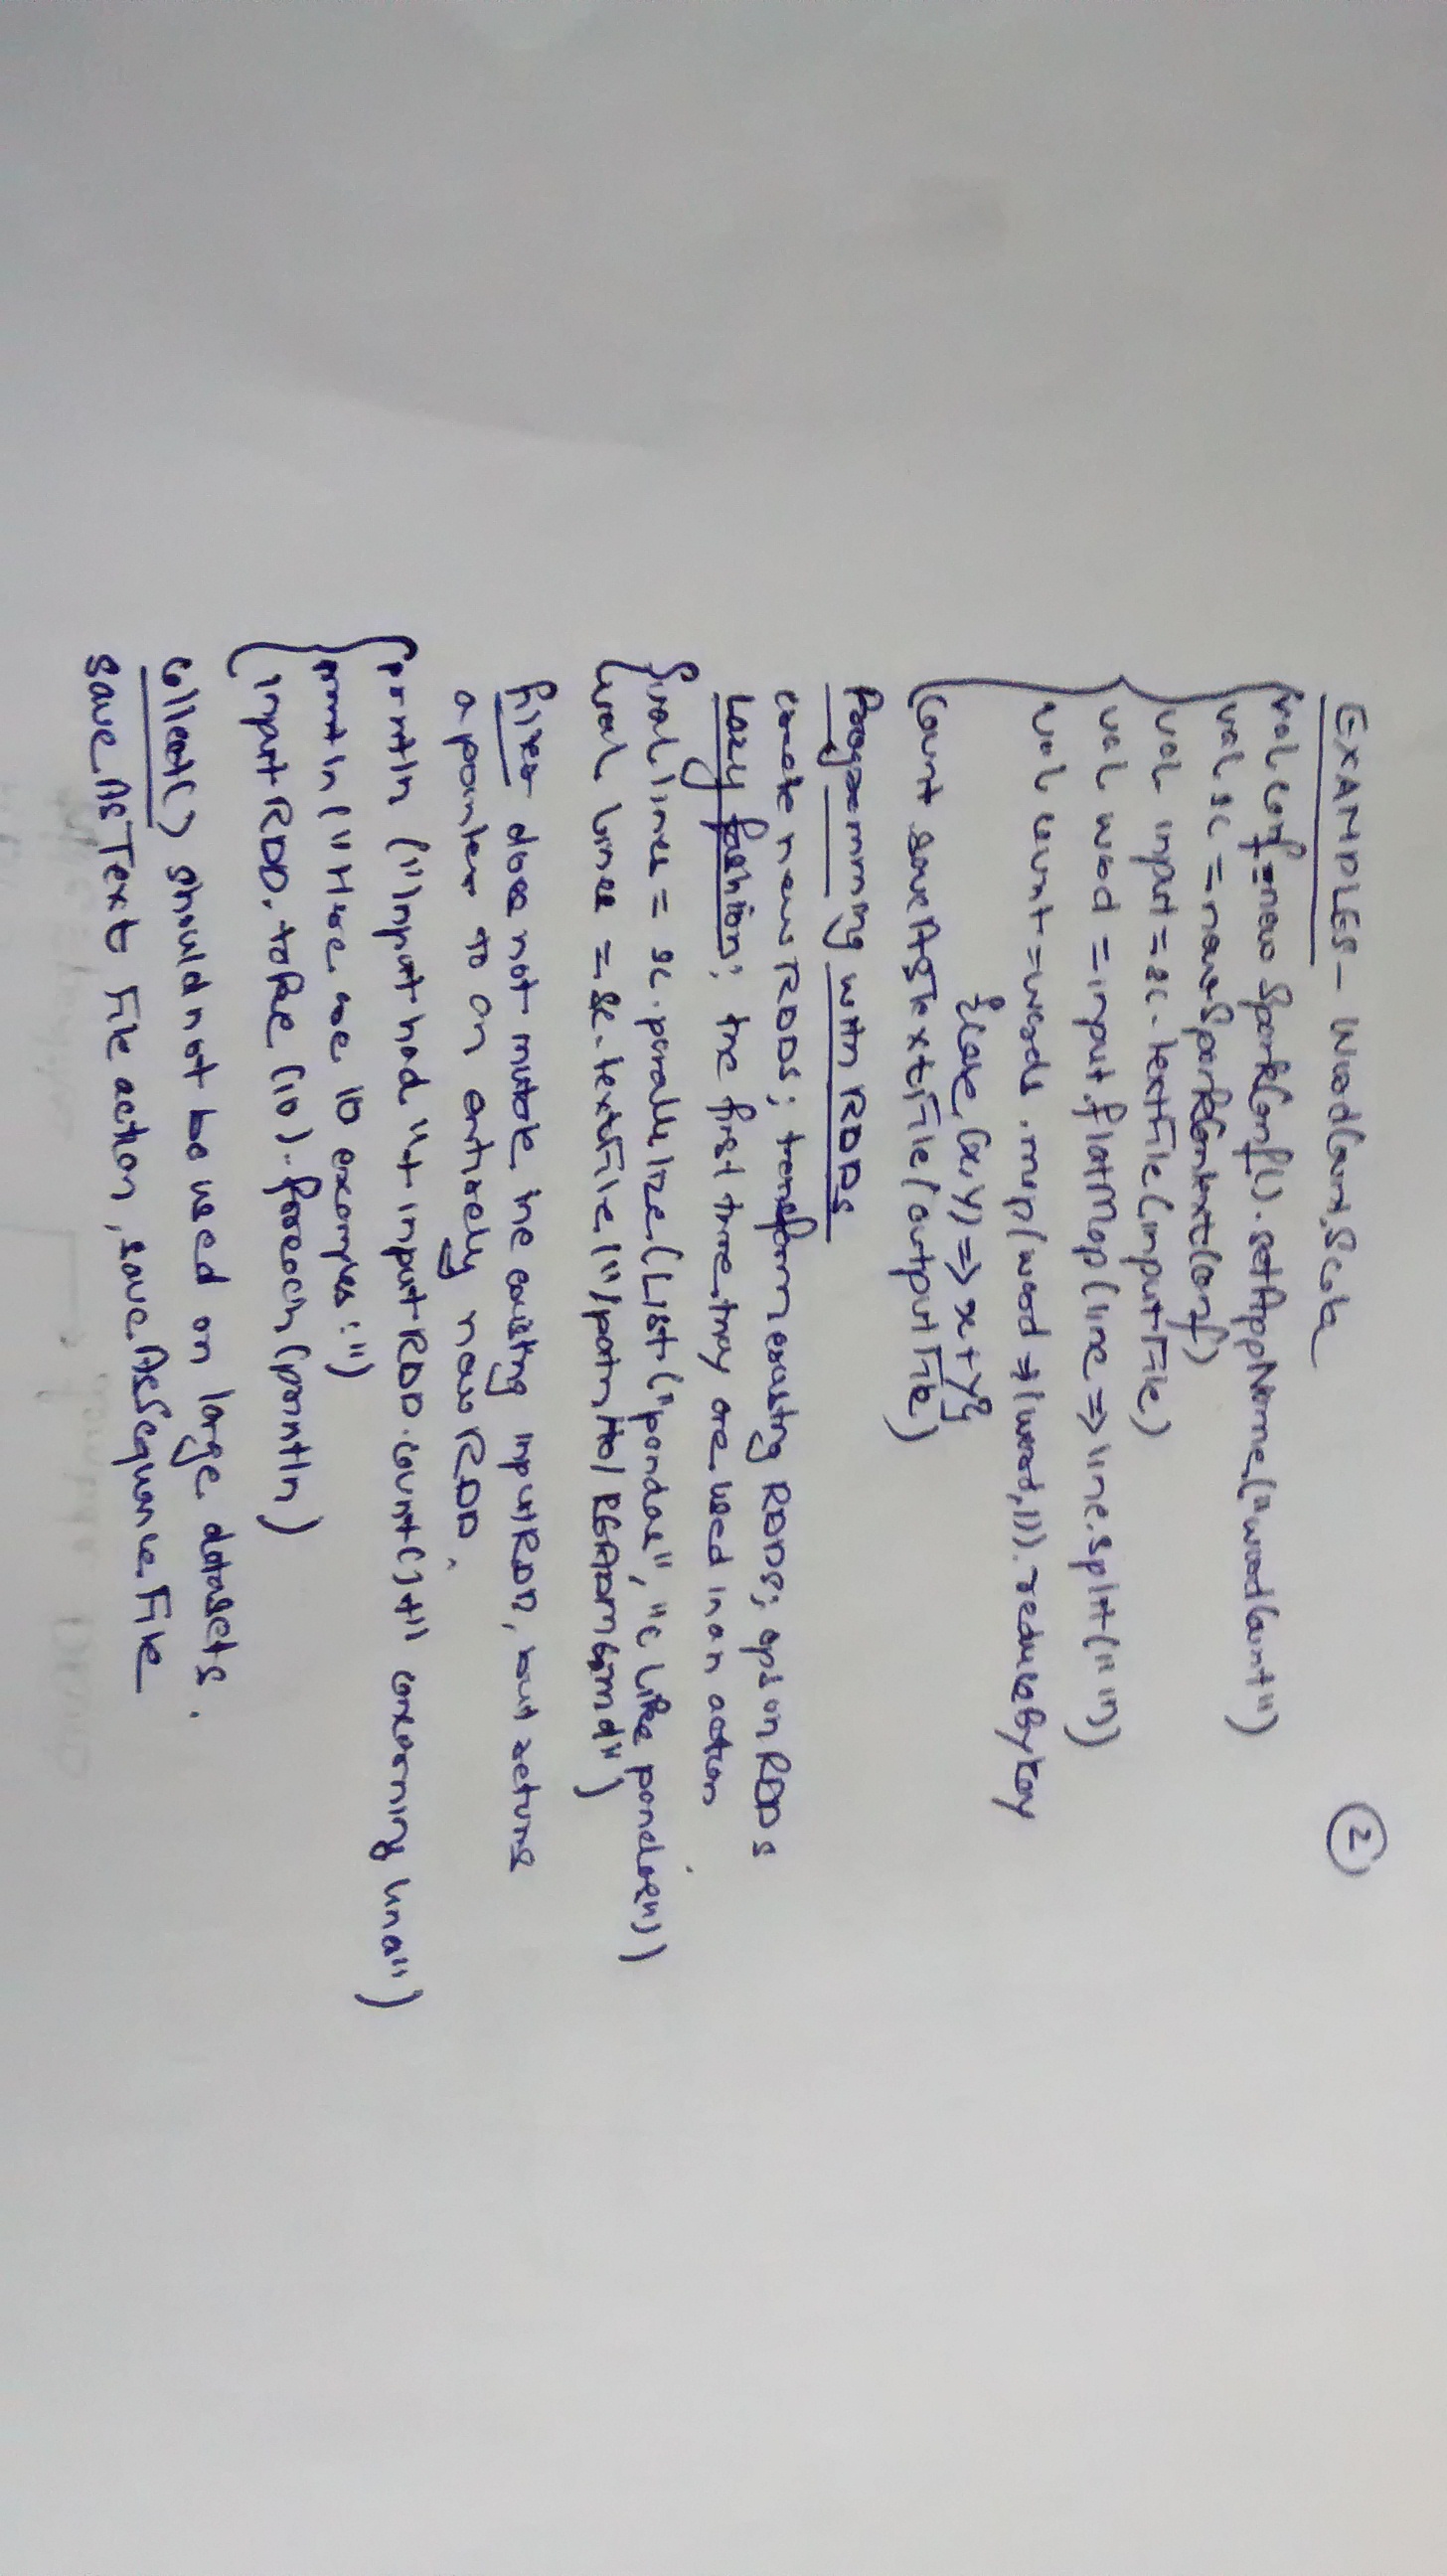 EXAMPLES - WordCount.Scala
②
val conf = new SparkConf().setAppName("wordCount")
val sc = new SparkContext(conf)
val input = sc.textFile(inputFile)
val word = input.flatMap(line => line.split(" "))
val count = words.map(word => (word,1)).reduceByKey
{case (x,y) => x+y}
count saveAsTextFile(outputFile)
Programming with RDDs
create new RDDs; transform existing RDDs; ops on RDDs
Lazy fashion; the first time they are used in an action
val lines = sc.parallelize(List("pandas", "i like pandas"))
val lines = sc.textFile("/path/to/README.md")
filter does not mutate the existing inputRDD, but returns
a pointer to an entirely new RDD.
println ("Input had "+ inputRDD.count()+" concerning lines")
println ("Here are 10 examples:")
inputRDD.take(10).foreach(println)
collect() should not be used on large datasets.
saveAsText File action, saveAsSequence File